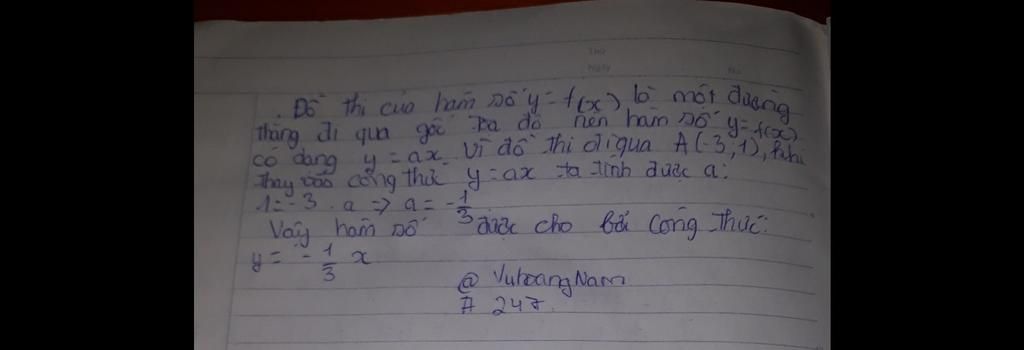 Thứ
Ngày
No
. Đồ thi của hàm số y=f(x) là một đường
thẳng đi qua gốc toạ độ nên hàm số y=f(x)
có dạng y=ax. Vì đồ thi đi qua A(-3;1), khi
thay vào công thức y=ax ta tính được a:
1=-3.a => a = -1/3
Vậy hàm số được cho bởi công thức:
y = -1/3 x
@ VuhoangNam
# 247.